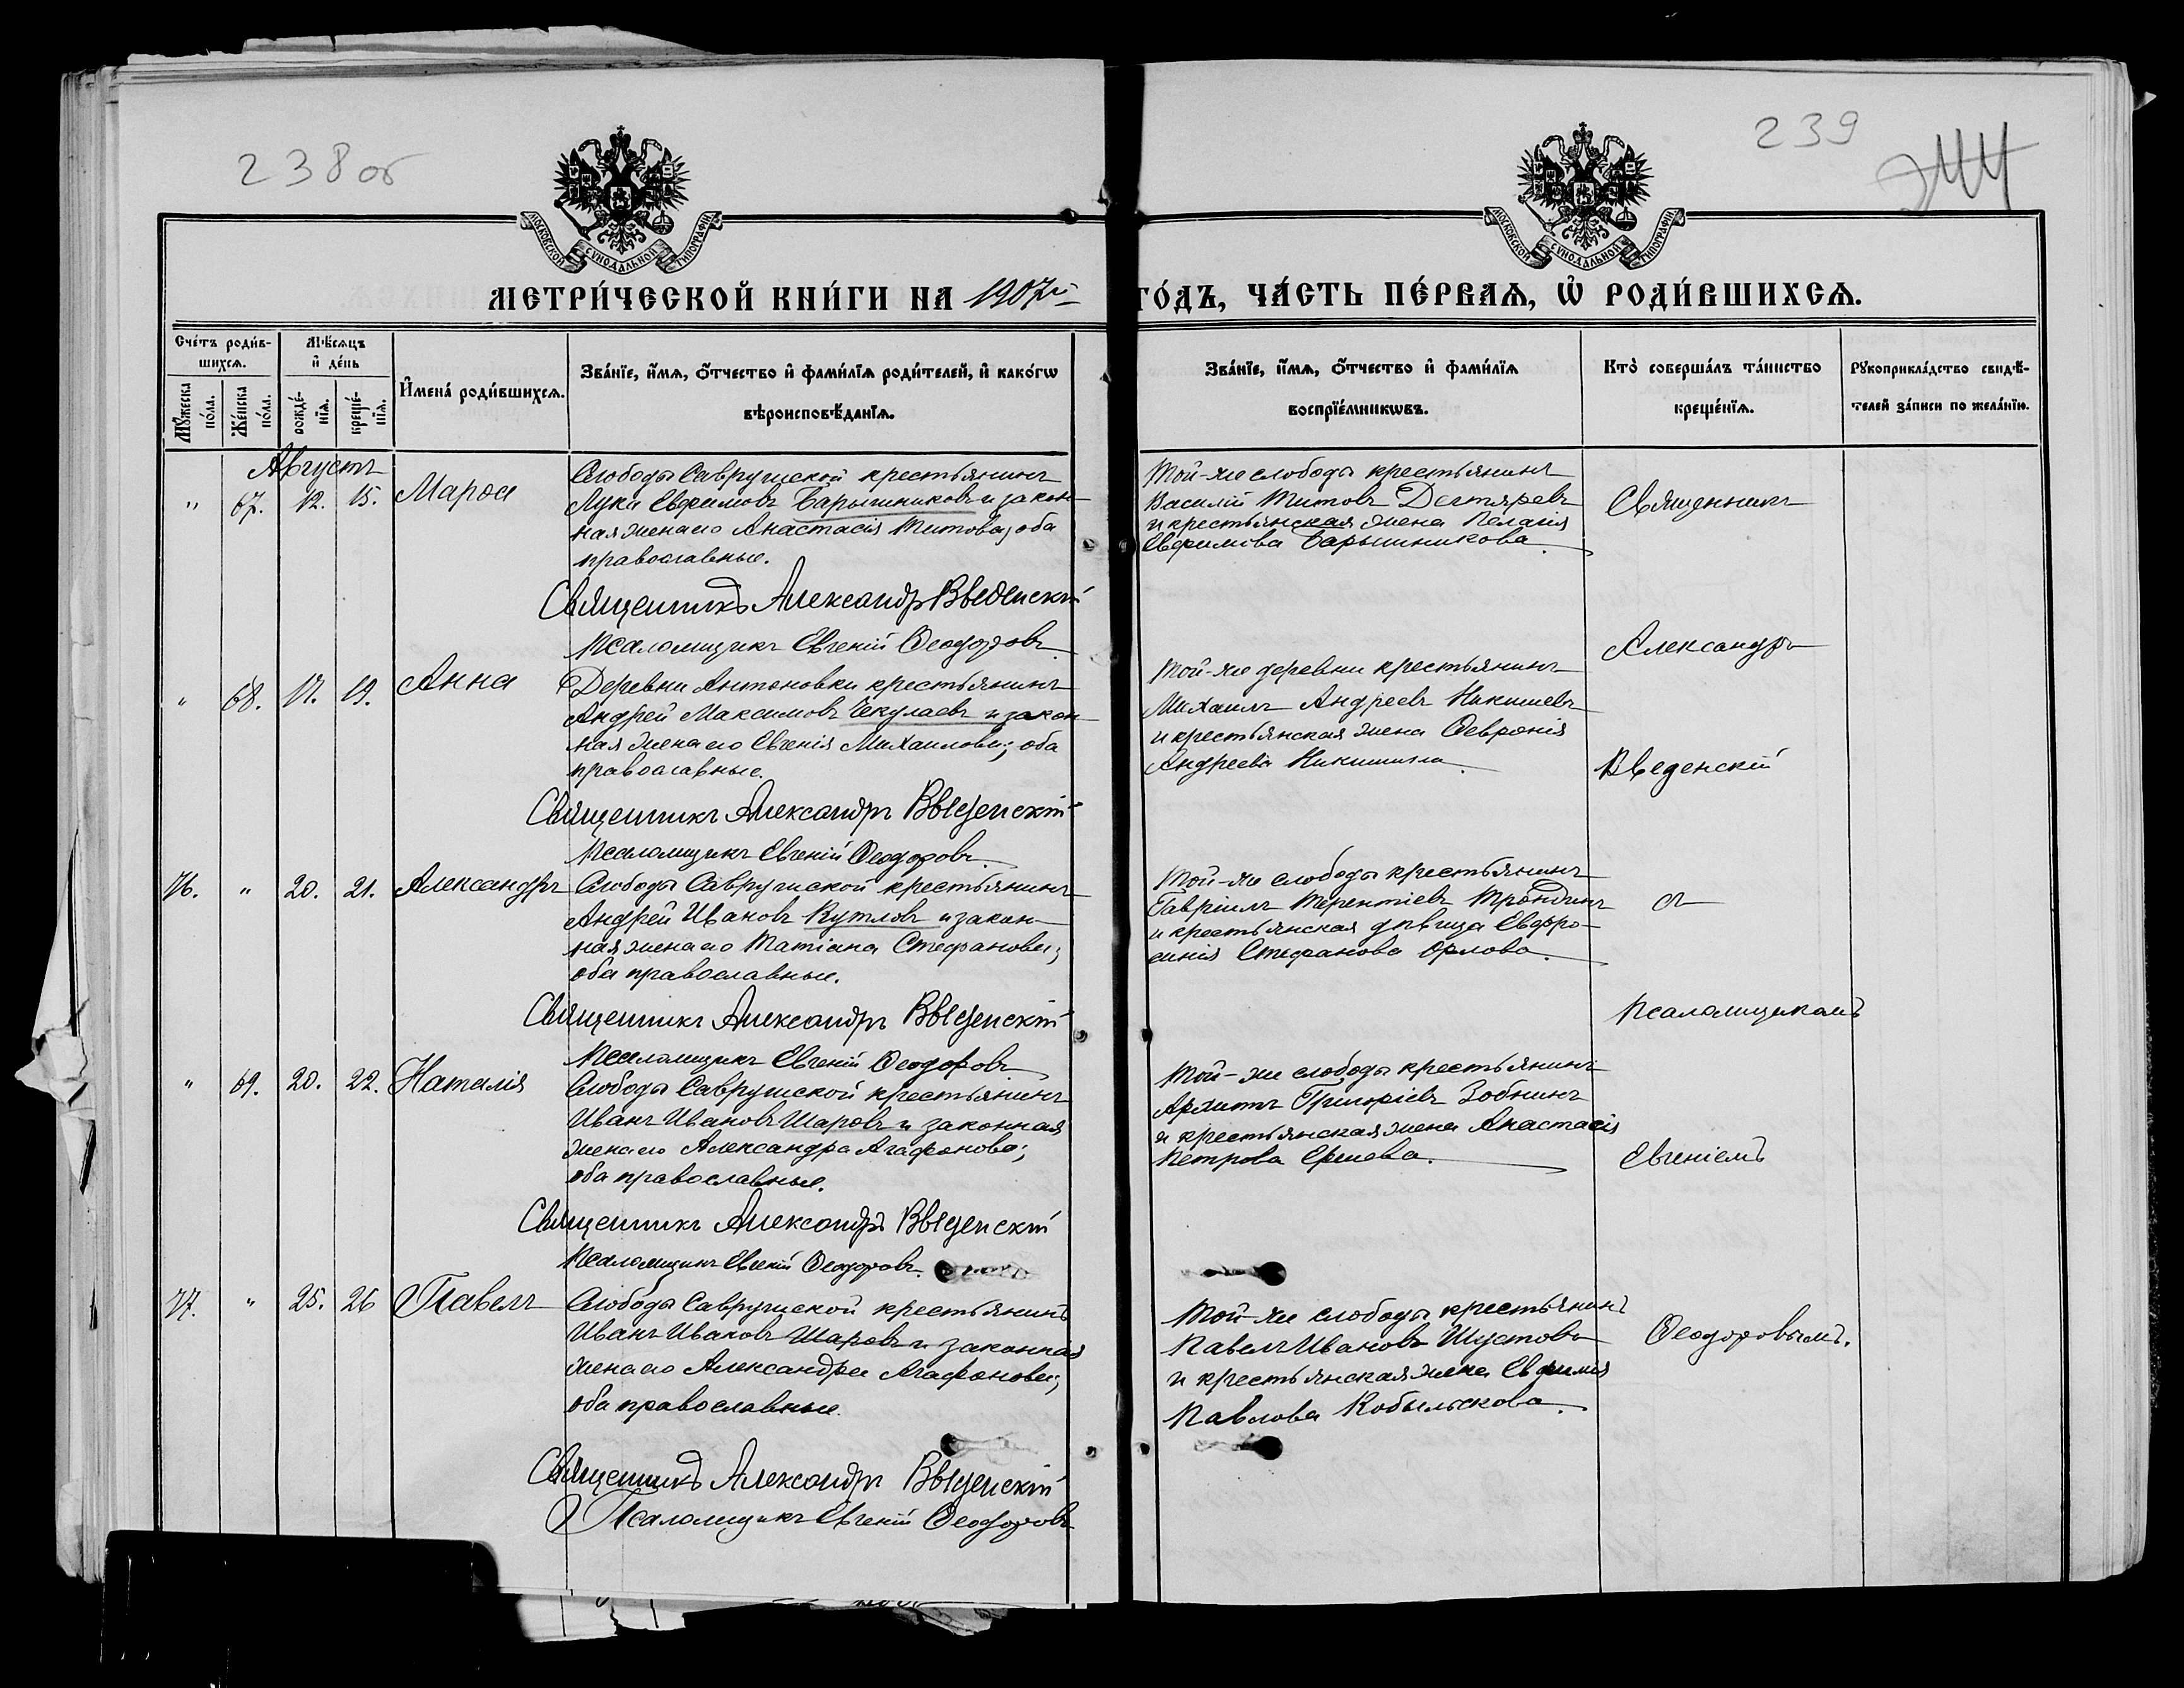 238 об
239
МОСКОВСКОЙ СѴНОДАЛЬНОЙ ТИПОГРАФІИ
МОСКОВСКОЙ СѴНОДАЛЬНОЙ ТИПОГРАФІИ
МЕТРИ́ЧЕСКОЙ КНИ́ГИ НА 1907й
ГО́ДЪ, ЧА́СТЬ ПЕ́РВАѦ, Ѡ҆ РОДИ́ВШИХСѦ.
Сче́тъ роди́в-
шихсѧ.
Мꙋ́жеска по́ла.
Же́нска по́ла.
Мѣ́сѧцъ
и҆ де́нь
рожде́-
нїѧ.
креще́-
нїѧ.
И҆мена̀ роди́вшихсѧ.
Зва́нїе, и҆́мѧ, ѻ҆́тчество и҆ фами́лїѧ роди́телей, и҆ како́гѡ
вѣроисповѣ́данїѧ.
Зва́нїе, и҆́мѧ, ѻ҆́тчество и҆ фами́лїѧ
воспрїе́мникѡвъ.
Кто̀ соверша́лъ та́инство
креще́нїѧ.
Рꙋкоприкла́дство свидѣ́-
телей за́писи по жела́нїю.
Августъ
" 67. 12. 15. Марѳа
Слободы Саврушской крестьянинъ
Лука Евфимовъ Барышниковъ и закон-
ная жена его Анастасія Титова; оба
православные.
Священникъ Александръ Введенскій
Псаломщикъ Евгеній Ѳеодоровъ.
Той-же слободы крестьянинъ
Василій Титовъ Дегтяревъ
и крестьянская жена Пелагія
Евфимова Барышникова.
Священникъ
" 68. 17. 19. Анна
Деревни Антоновки крестьянинъ
Андрей Максимовъ Чекулаевъ и закон-
ная жена его Евгенія Михаилова; оба
православные.
Священникъ Александръ Введенскій
Псаломщикъ Евгеній Ѳеодоровъ.
Той-же деревни крестьянинъ
Михаилъ Андреевъ Никишевъ
и крестьянская жена Ѳевронія
Андреева Никишина.
Александръ
Введенскій
76. " 20. 21. Александръ
Слободы Саврушской крестьянинъ
Андрей Ивановъ Кутловъ и закон-
ная жена его Татіана Стефанова;
оба православные.
Священникъ Александръ Введенскій
Псаломщикъ Евгеній Ѳеодоровъ
Той-же слободы крестьянинъ
Гавріилъ Терентіевъ Трондинъ
и крестьянская дѣвица Евфро-
синія Стефанова Орлова.
съ
Псаломщикомъ
" 69. 20. 22. Наталія
Слободы Саврушской крестьянинъ
Иванъ Ивановъ Шаровъ и законная
жена его Александра Агафонова;
оба православные.
Священникъ Александръ Введенскій
Псаломщикъ Евгеній Ѳеодоровъ.
Той-же слободы крестьянинъ
Архипъ Григоріевъ Зобнинъ
и крестьянская жена Анастасія
Петрова Ершова.
Евгеніемъ
77. " 25. 26 Павелъ
Слободы Саврушской крестьянинъ
Иванъ Ивановъ Шаровъ и законная
жена его Александра Агафонова;
оба православные.
Священникъ Александръ Введенскій
Псаломщикъ Евгеній Ѳеодоровъ
Той-же слободы крестьянинъ
Павелъ Ивановъ Шустовъ
и крестьянская жена Евфимія
Павлова Кобыльскова.
Ѳеодоровымъ.